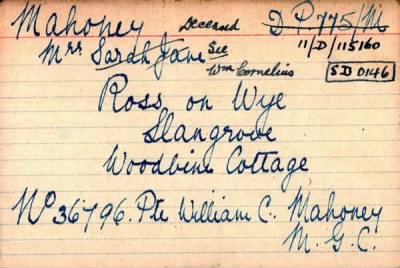 Mahoney Deceased D.P. 775/M
Mrs Sarah Jane See 11/D/115160
Wm Cornelius SD 0146
Ross on Wye
Llangrove
Woodbine Cottage
No 36796. Pte William C. Mahoney
M. G. C.